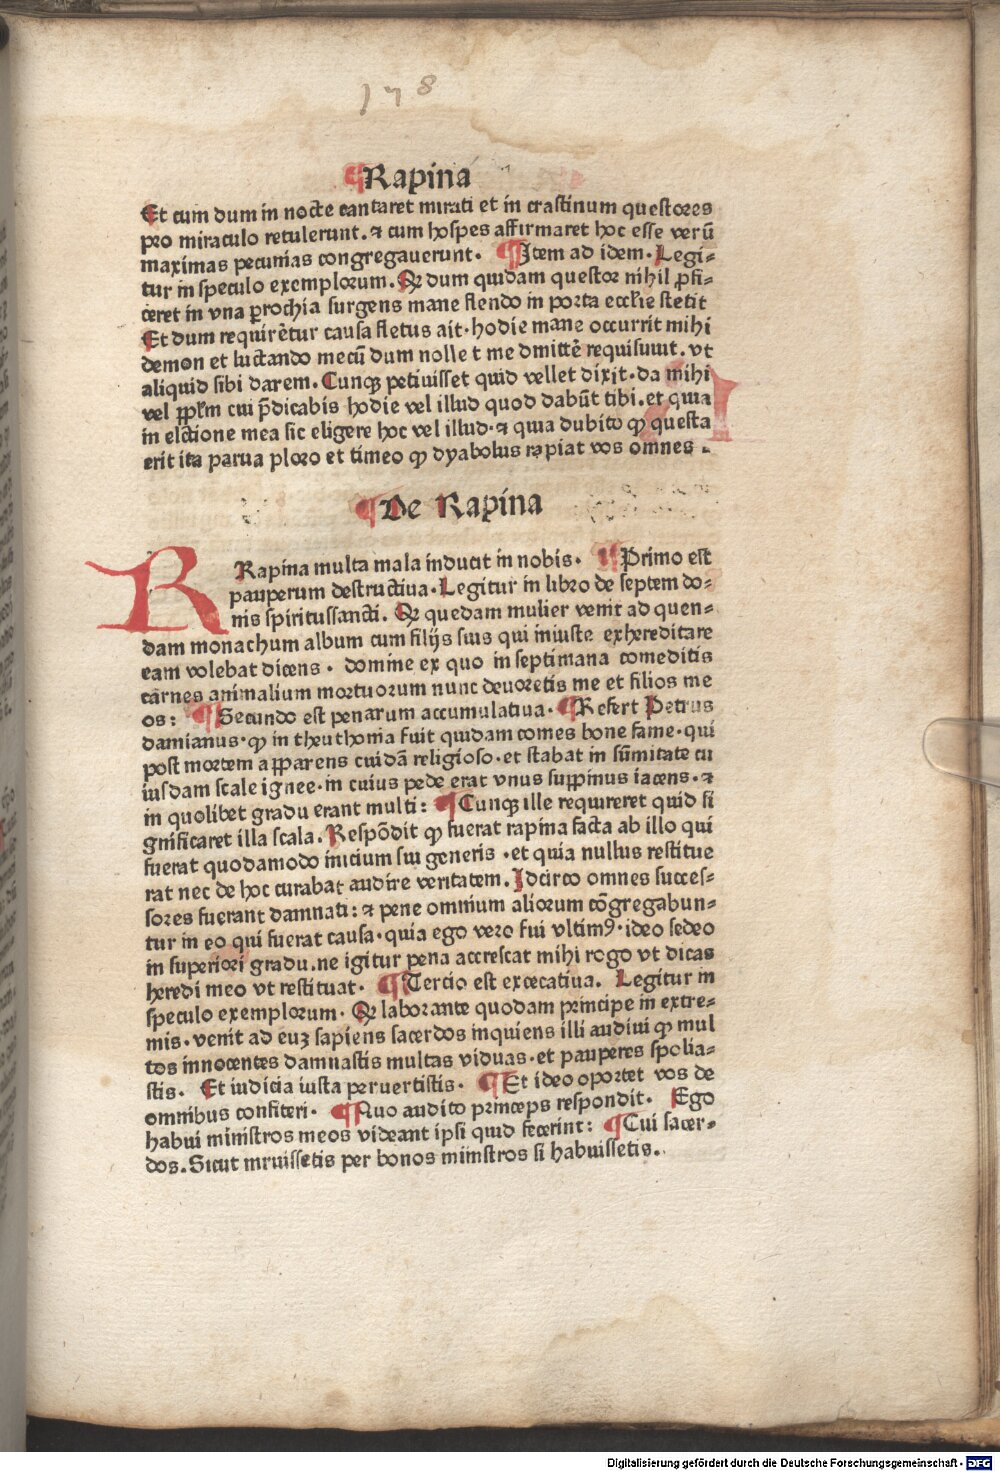 178
¶Rapina
Et cum dum in nocte cantaret mirati et in crastinum questores
pro miraculo retulerunt. ⁊ cum hospes affirmaret hoc esse verū
maximas pecunias congregauerunt. ¶Item ad idem. Legi-
tur in speculo exemplorum. Qꝛ dum quidam questor nihil ꝓfi-
ceret in vna ꝑrochia surgens mane flendo in porta eccl'ie stetit
Et dum requirēetur causa fletus ait. hodie mane occurrit mihi
demon et luctando mecū dum nolle t me dmittē requisiuit. vt
aliquid sibi darem. Cunqꝫ petiuisset quid vellet dixit. da mihi
vel ꝑpl'm cui p̄dicabis hodie vel illud quod dabūt tibi. et quia
in elctione mea sic eligere hoc vel illud. ⁊ quia dubito ꝙ questa
erit ita parua ploro et timeo ꝙ dyabolus rapiat vos omnes .
¶De Rapina
R Rapina multa mala inducit in nobis. ¶Primo est
pauperum destructiua. Legitur in libro de septem do-
nis spiritussancti. Qꝛ quedam mulier venit ad quen-
dam monachum album cum filijs suis qui iniuste exhereditare
eam volebat dicens . domine ex quo in septimana comeditis
carnes animalium mortuorum nunc deuoretis me et filios me
os: ¶Secundo est penarum accumulatiua. ¶Refert Petrus
damianus. ꝙ in theuthonia fuit quidam comes bone fame. qui
post mortem apparens cuidā religioso. et stabat in sūmitate cu
iusdam scale ignee. in cuius pede erat vnus suppinus iacens. ⁊
in quolibet gradu erant multi: ¶Cunqꝫ ille requireret quid si
gnificaret illa scala. Respōdit ꝙ fuerat rapina facta ab illo qui
fuerat quodamodo inicium sui generis .et quia nullus restitue
rat nec de hoc curabat audire veritatem. Idcirco omnes succes-
sores fuerant damnati: ⁊ pene omnium aliorum cōgregabun-
tur in eo qui fuerat causa. quia ego vero fui vltimꝰ. ideo sedeo
in superiori gradu. ne igitur pena accrescat mihi rogo vt dicas
heredi meo vt restituat. ¶Tercio est excecatiua. Legitur in
speculo exemplorum. Qꝛ laborante quodam principe in extre-
mis. venit ad euꝫ sapiens sacerdos inquiens illi audiui ꝙ mul
tos innocentes damnastis multas viduas. et pauperes spolia-
stis. Et iudicia iusta peruertistis. ¶Et ideo oportet vos de
omnibus confiteri. ¶Quo audito princeps respondit. Ego
habui ministros meos videant ipsi quid fecerint: ¶Cui sacer-
dos. Sicut mruissetis per bonos mimstros si habuissetis.
Digitalisierung gefördert durch die Deutsche Forschungsgemeinschaft - DFG